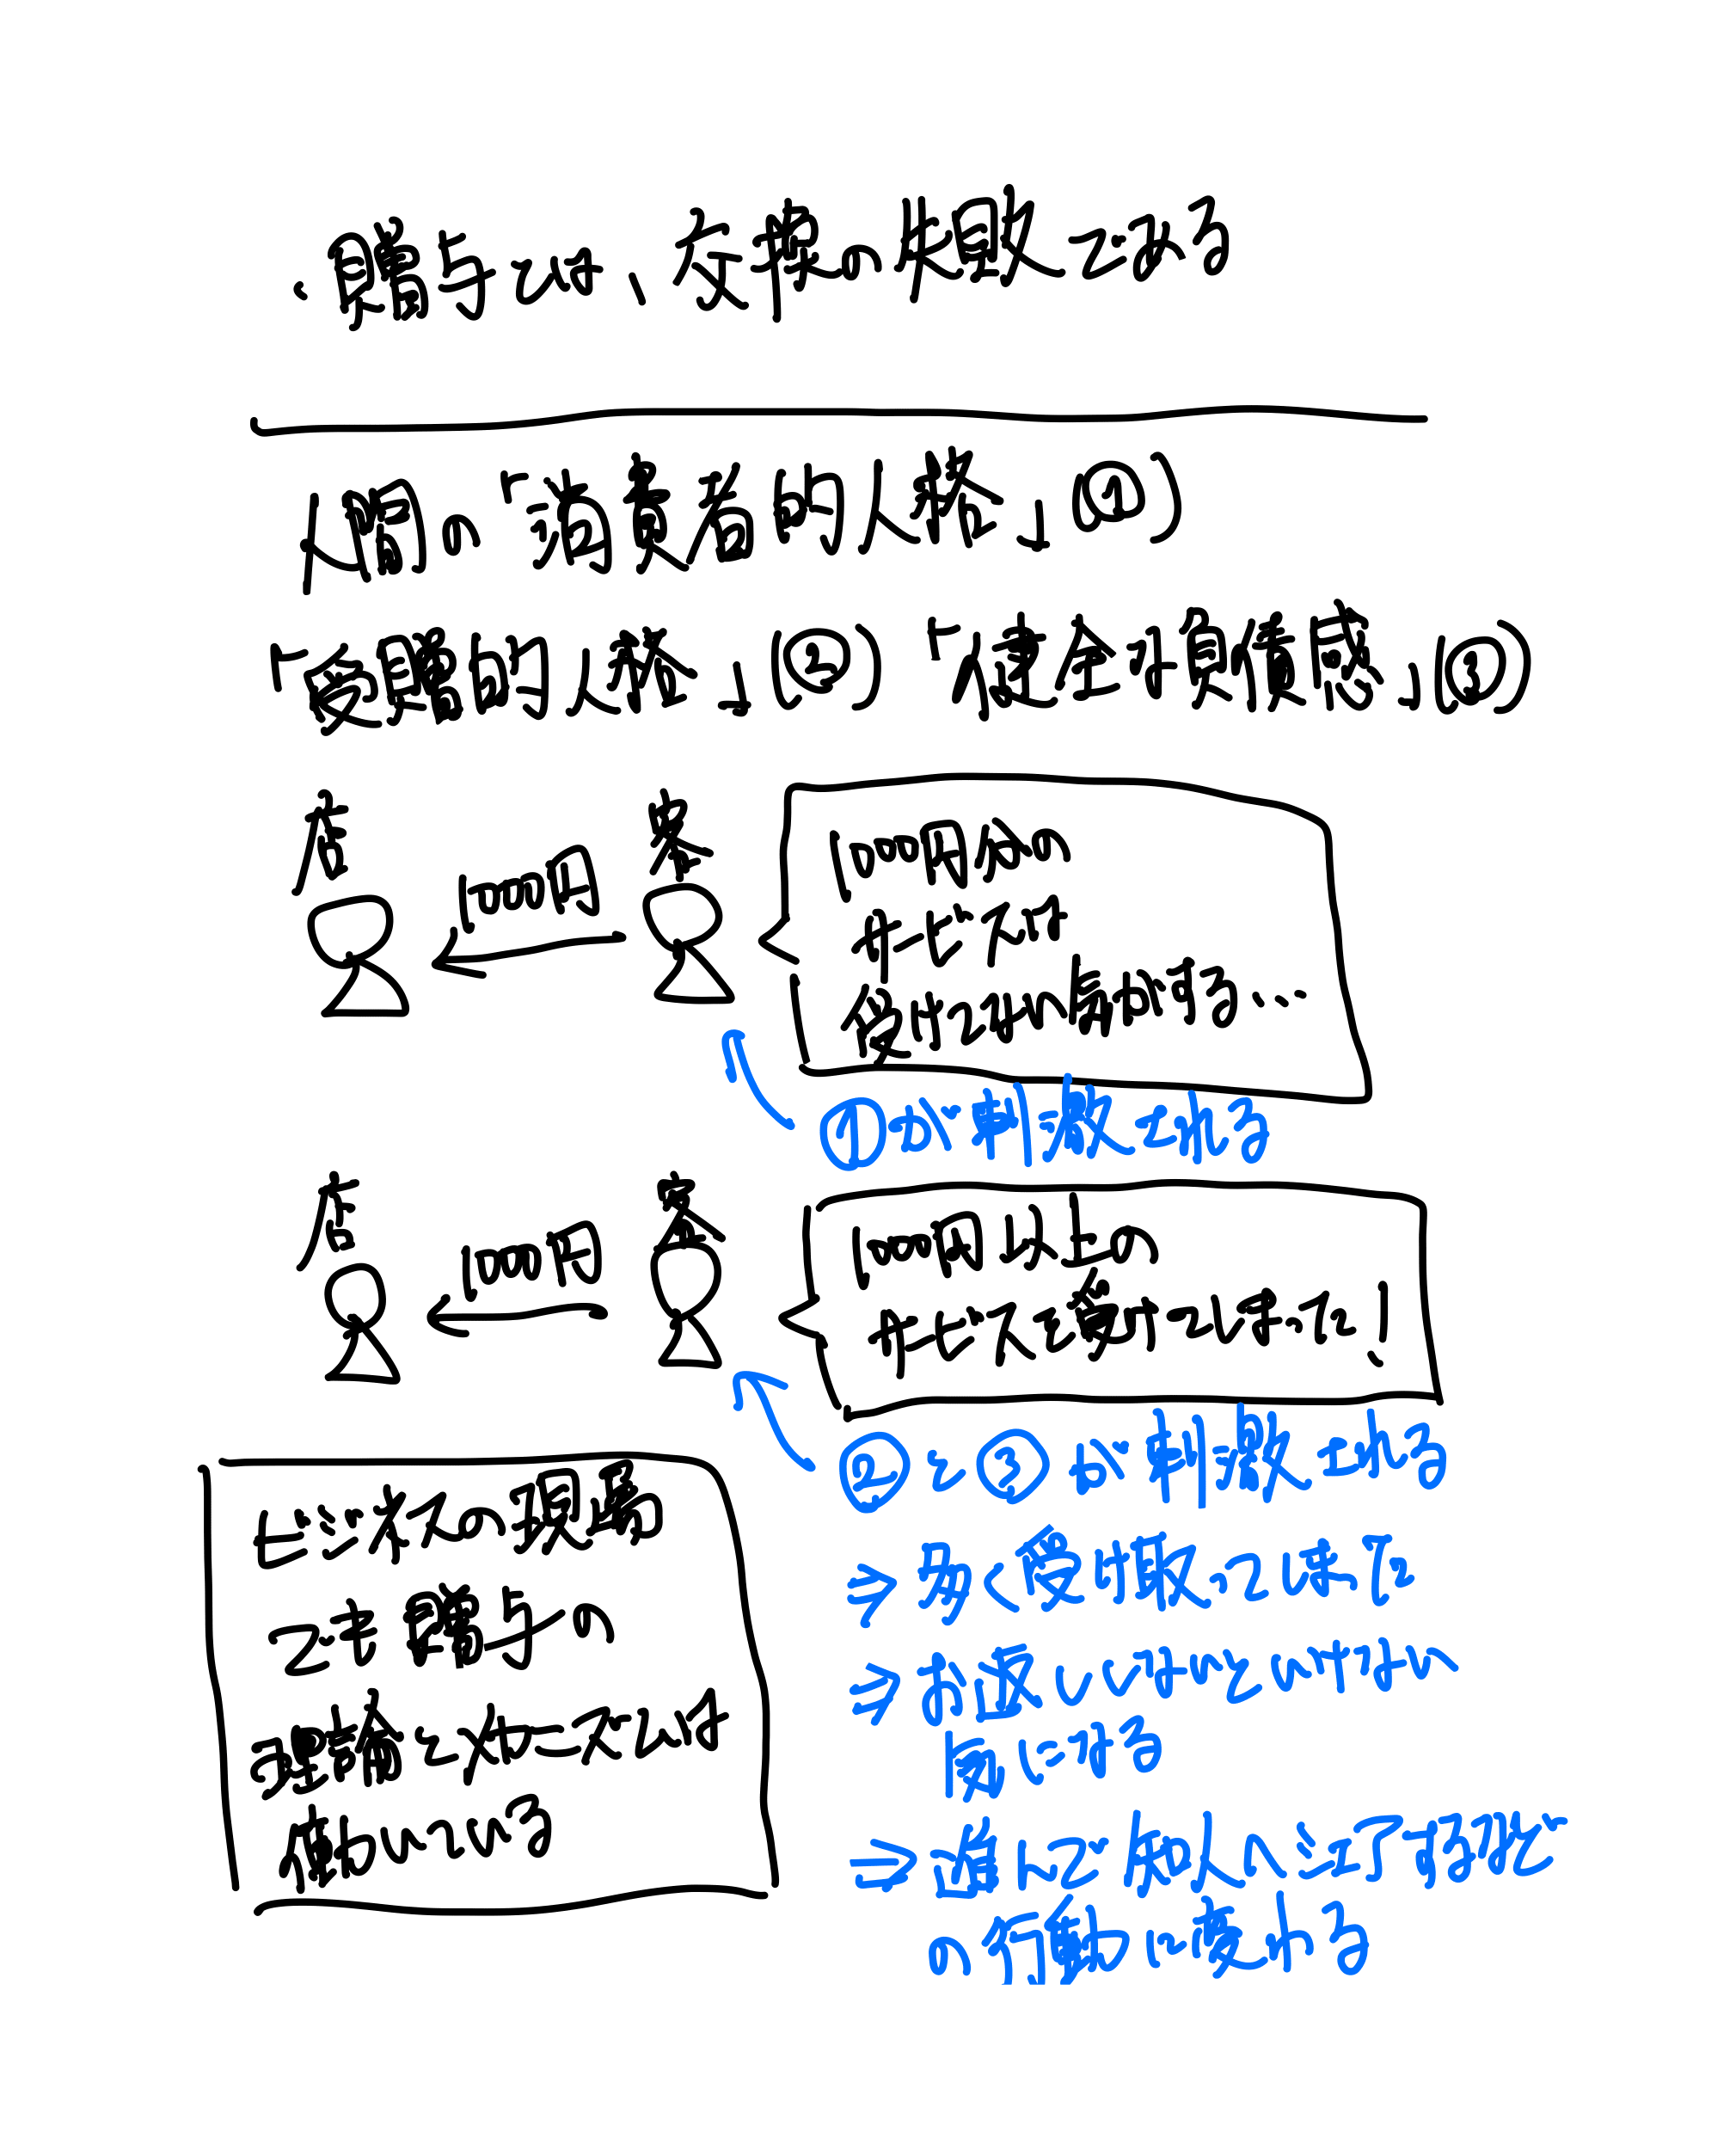 ・贈与とは、交換の失敗である
人間の「消費者的人格」(①)
「受贈的人格」(②)「健全な負債感」(③)
店
客
1000円
1000円分の
サービスは
受けて当り前である…
①が刺激される
店
客
1000円
1000円以上の
サービスを受けてしまった!
②と③が刺激される
⇒多く受け取ってしまった
⇒お返ししなければいけない
気になる
⇒誰にでも仕込んで可能
の行動に変わる
ビジネスの現場
でも贈与の
理論とメカニズムは
働いている